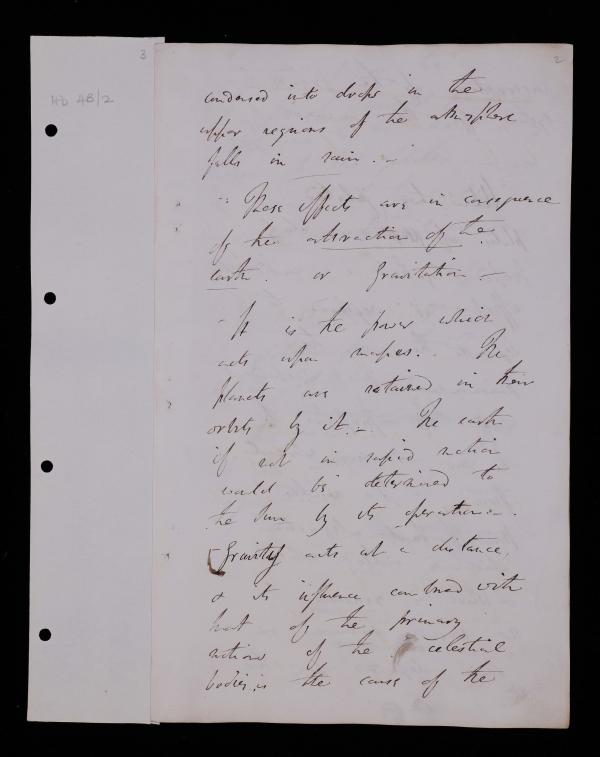 3
2
HD 4B/2
condensed into drops in the
upper regions of the atmosphere
falls in rain. —
These effects are in consequence
of the attraction of the
earth. or Gravitation —
— It is the power which
acts upon masses. The
planets are retained in their
orbits by it. — The earth
if not in rapid motion
would be determined to
the Sun by its operation.
[Gravity acts at a distance,
& its influence combined with
that of the primary
motions of the celestial
bodies, is the cause of the